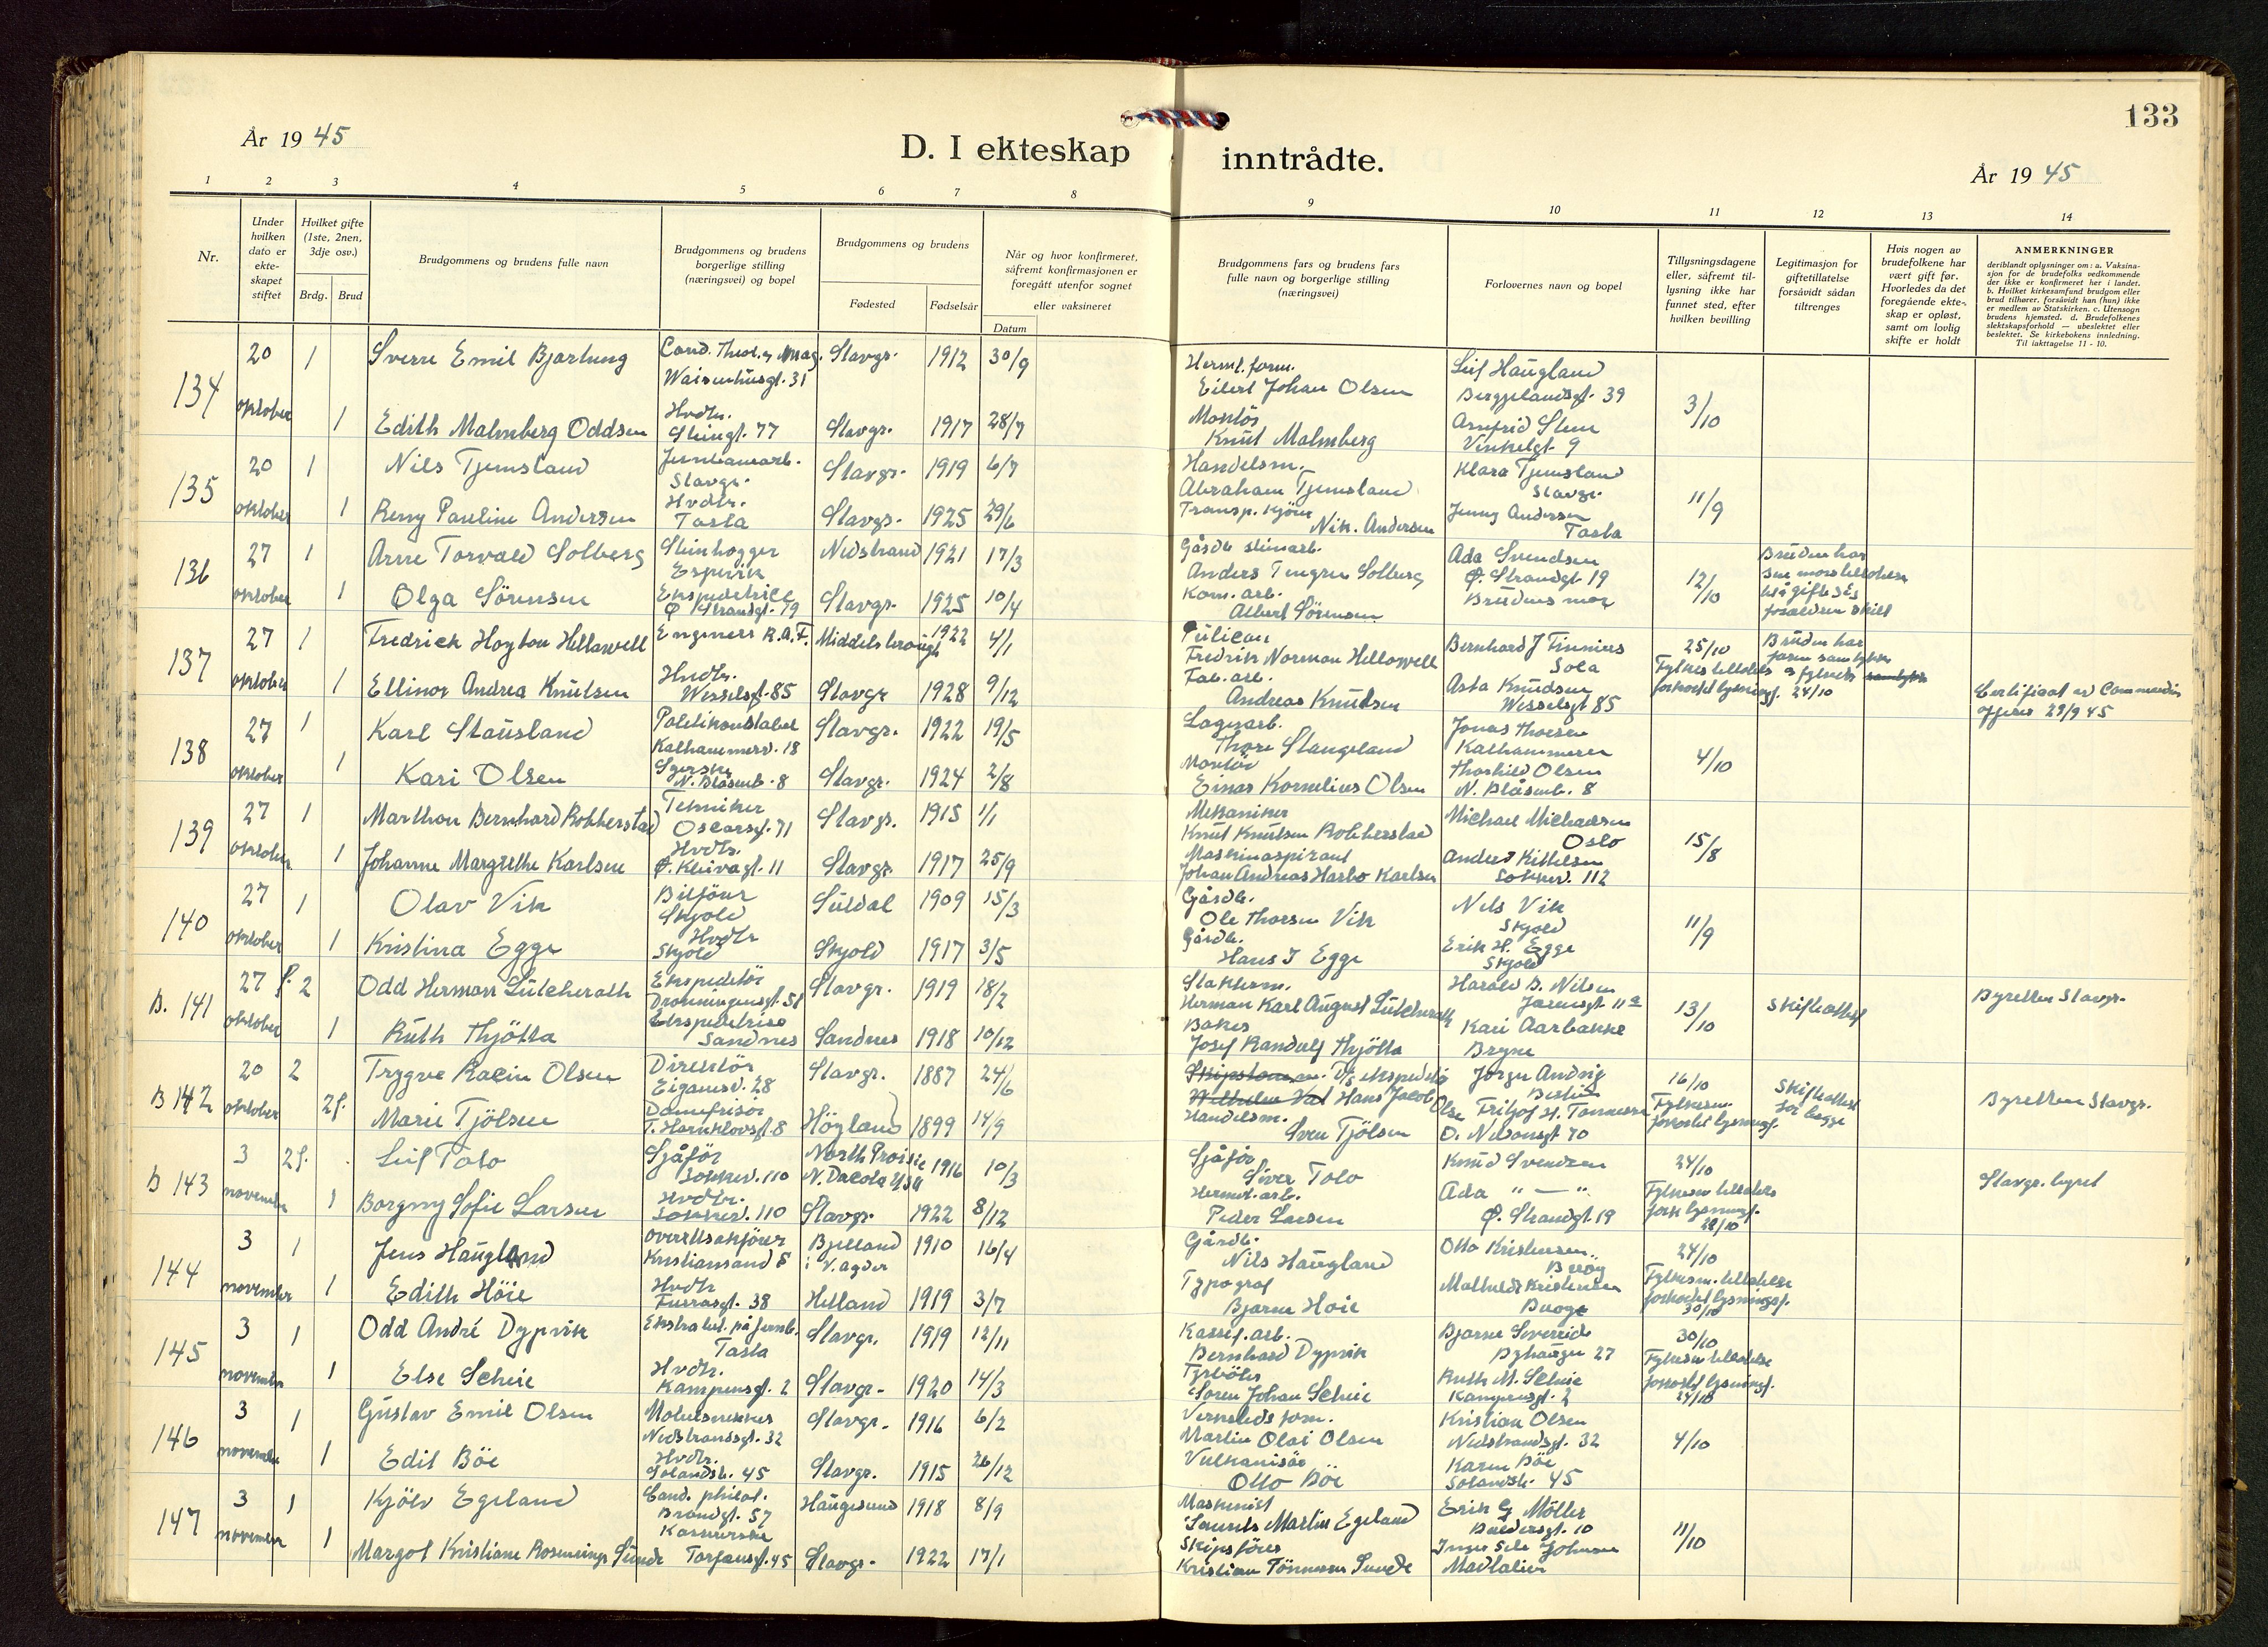 133
År 1945
D. I ekteskap inntrådte.
År 1945
1 2 3 4 5 6 7 8 9 10 11 12 13 14
Nr.
Under hvilken dato er ekte-skapet stiftet
Hvilket gifte (1ste, 2nen, 3dje osv.)
Brdg. Brud
Brudgommens og brudens fulle navn
Brudgommens og brudens borgerlige stilling (næringsvei) og bopel
Brudgommens og brudens
Fødested Fødselsår
Når og hvor konfirmeret, såfremt konfirmasjonen er foregått utenfor sognet
eller vaksineret
Datum
Brudgommens fars og brudens fars fulle navn og borgerlige stilling (næringsvei)
Forlovernes navn og bopel
Tillysningsdagene eller, såfremt til-lysning ikke har funnet sted, efter hvilken bevilling
Legitimasjon for giftetillatelse forsåvidt sådan tiltrenges
Hvis nogen av brudefolkene har vært gift før. Hvorledes da det foregående ekte-skap er opløst, samt om lovlig skifte er holdt
ANMERKNINGER
deriblandt oplysninger om: a. Vaksina-sjon for de brudefolks vedkommende der ikke er konfirmeret her i landet. b. Hvilket kirkesamfund brudgom eller brud tilhører, forsåvidt han (hun) ikke er medlem av Statskirken. c. Utensogn brudens hjemsted. d. Brudefolkenes slektskapsforhold — ubeslektet eller beslektet. Se kirkebokens innledning. Til iakttagelse 11 - 10.
134 20 oktober 1 Sverre Emil Bjartung Cand. Theol. og Mag. Waisenhusgt. 31 Stavgr. 1912 30/9 Hermt. form. Eilert Johan Olsen Leif Haugland Bergjelandsgt. 39 3/10
1 Edith Malmberg Oddsen Hvdtr. Steingt. 77 Stavgr. 1917 28/7 Montör Knut Malmberg Arnfrid Stene Vinkelgt. 9
135 20 oktober 1 Nils Tjemsland Stavgr. Stavgr. 1919 6/7 Handelsm. Abraham Tjemsland Klara Tjemsland Stavgr. 11/9
1 Reny Pauline Andersen Hvdtr. Tasta Stavgr. 1925 29/6 Transp. kjörer Nik. Andersen Jenny Andersen Tasta
136 27 oktober 1 Arne Torvald Solberg Steinhogger Espevik Nedstrand 1921 17/3 Gårdb. steinarb. Anders Tengren Solberg Ada Svendsen Ø. Strandgt. 19 12/10 Bruden har sin mors tillatelse til å gifte seg foreldren skilt
1 Olga Sörensen Ekspeditrice Ø Strandgt. 79 Stavgr. 1925 10/4 Kom. arb. Albert Sörensen Brudens mor
137 27 oktober 1 Fredrick Hoyton Hellawell Engineers R.A.F. Middelsbrough 1922 4/1 Fredrik Norman Hellowell Bernhard J Finnies Sola 25/10 Fylkes tillatelse forkortet lysningsf. 24/10 Bruden har
1 Ellinor Andrea Knutsen Hvdtr. Wesselsgt. 85 Stavgr 1928 9/12 Fab. arb. Andreas Knutsen Asta Knudsen Wesselsgt 85 Certificat av Commanding officer 29/9 45
138 27 oktober 1 Karl Stausland Politikonstabel Kalhammerv. 18 Stavgr. 1922 19/5 Lagerarb. Thore Stangeland Jonas Thorsen Kalhammeren 4/10
1 Kari Olsen Syerske N. Blåsenb. 8 Stavgr. 1924 2/8 Montör Einar Kornelius Olsen Thorhild Olsen N. Blåsenb. 8
139 27 oktober 1 Marthon Bernhard Robberstad Tekniker Oscarsgt. 71 Stavgr. 1915 1/1 Mekaniker Knut Knutsen Robberstad Michael Michaelsen Oslo 15/8
1 Johanne Margrethe Karlsen Hvdtr. Ø. Kleivagt. 11 Stavgr. 1917 25/9 Maskinaspirant Johan Andreas Harbo Karlsen Anders Kittelsen Sokknv. 112
140 27 oktober 1 Olav Vik Biljörer Skjold Suldal 1909 15/3 Gårdb. Ole Thorsen Vik Nils Vik Skjold 11/9
1 Kristina Egge Hvdtr Skjold Skjold 1917 3/5 Gårdb. Hans J Egge Erik H. Egge Skjold
B. 141 27 oktober f. 2 Odd Herman Lütcherath Ekspeditör Dronningensgt. 51 Stavgr. 1919 18/2 Herman Karl August Lütcherath Harald B. Nilsen Jærensgt 11a 13/10 Skifteattest Byretten Stavgr.
1 Ruth Thjötta Ekspeditrise Sandnes Sandnes 1918 10/12 Baker Josef Randulf Thjötta Kari Aarbakke Bryne
B 142 20 oktober 2 Trygve Racin Olsen Direktör Eiganesv. 28 Stavgr. 1887 24/6 D/s ekspeditör Hans Jacob Olsen Jörgen Andvig Bertins 16/10 Fylkesm. forkortet lysningsf. Skifteattest for begge Byretten Stavgr.
2f. Marie Tjölsen Damefrisör T. Hornklovsgt. 8 Höyland 1899 14/9 Handelsm. Sven Tjölsen Fritjof H. Tönnesen O. Nilsonsgt 70
B 143 3 november 2f. Leif Tolo Sjåför Sokknv. 110 North Prairie N. Dacota USA 1916 10/3 Sjåför Siver Tolo Knud Svendsen 24/10 Fylkesm tillatelse fork lysningsf. 29/10 Stavgr. byret
1 Borgny Sofie Larsen Hvdtr. Sokknv. 110 Stavgr. 1922 8/12 Hermet. arb. Peder Larsen Ada " — " Ø. Strandgt. 19
144 3 november 1 Jens Haugland Kristiansand S Bjelland i V. Agder 1910 16/4 Gårdb. Nils Haugland Otto Kristensen Buøy 24/10 Fylkesm. tillatelse forkortet lysningsf. 30/10
1 Edith Höie Hvdtr Furrasgt. 38 Hetland 1919 3/7 Typograf Bjarne Hoie Mathilde Kristensen Buøy
145 3 november 1 Odd André Dypvik Ekstrabet. på jernb. Tasta Stavgr. 1919 12/11 Kassef. arb. Bernhard Dypvik Bjarne Sverreide Byhaugen 27 30/10 Fylkesm tillatelse forkortet lysningsf. 24/10
1 Else Scheie Hvdtr. Kampensgt. 2 Stavgr. 1920 14/3 Soren Johan Scheie Ruth M. Scheie Kampensgt. 2
146 3 november 1 Gustav Emil Olsen Mobelsnekker Nedstrandsgt. 32 Stavgr. 1916 6/2 Verksteds form. Martin Olai Olsen Kristian Olsen Nedstrandsgt. 32 4/10
1 Edit Böe Hvdtr. Solandsb. 45 Stavgr. 1915 26/12 Vulkanisör Otto Böe Karen Böe Solandsb. 45
147 3 november 1 Kjölv Egeland Cand. philol. Brandgt. 57 Haugesund 1918 8/9 Maskinist Laurits Martin Egeland Erik G Möller Baldersgt. 10 11/10
1 Margot Kristiane Rosenvinge Sunde Kassererske Torfæusgt. 45 Stavgr. 1922 17/1 Skipsförer Kristian Tönnesen Sunde Inger Sele Johnsen Madlalier